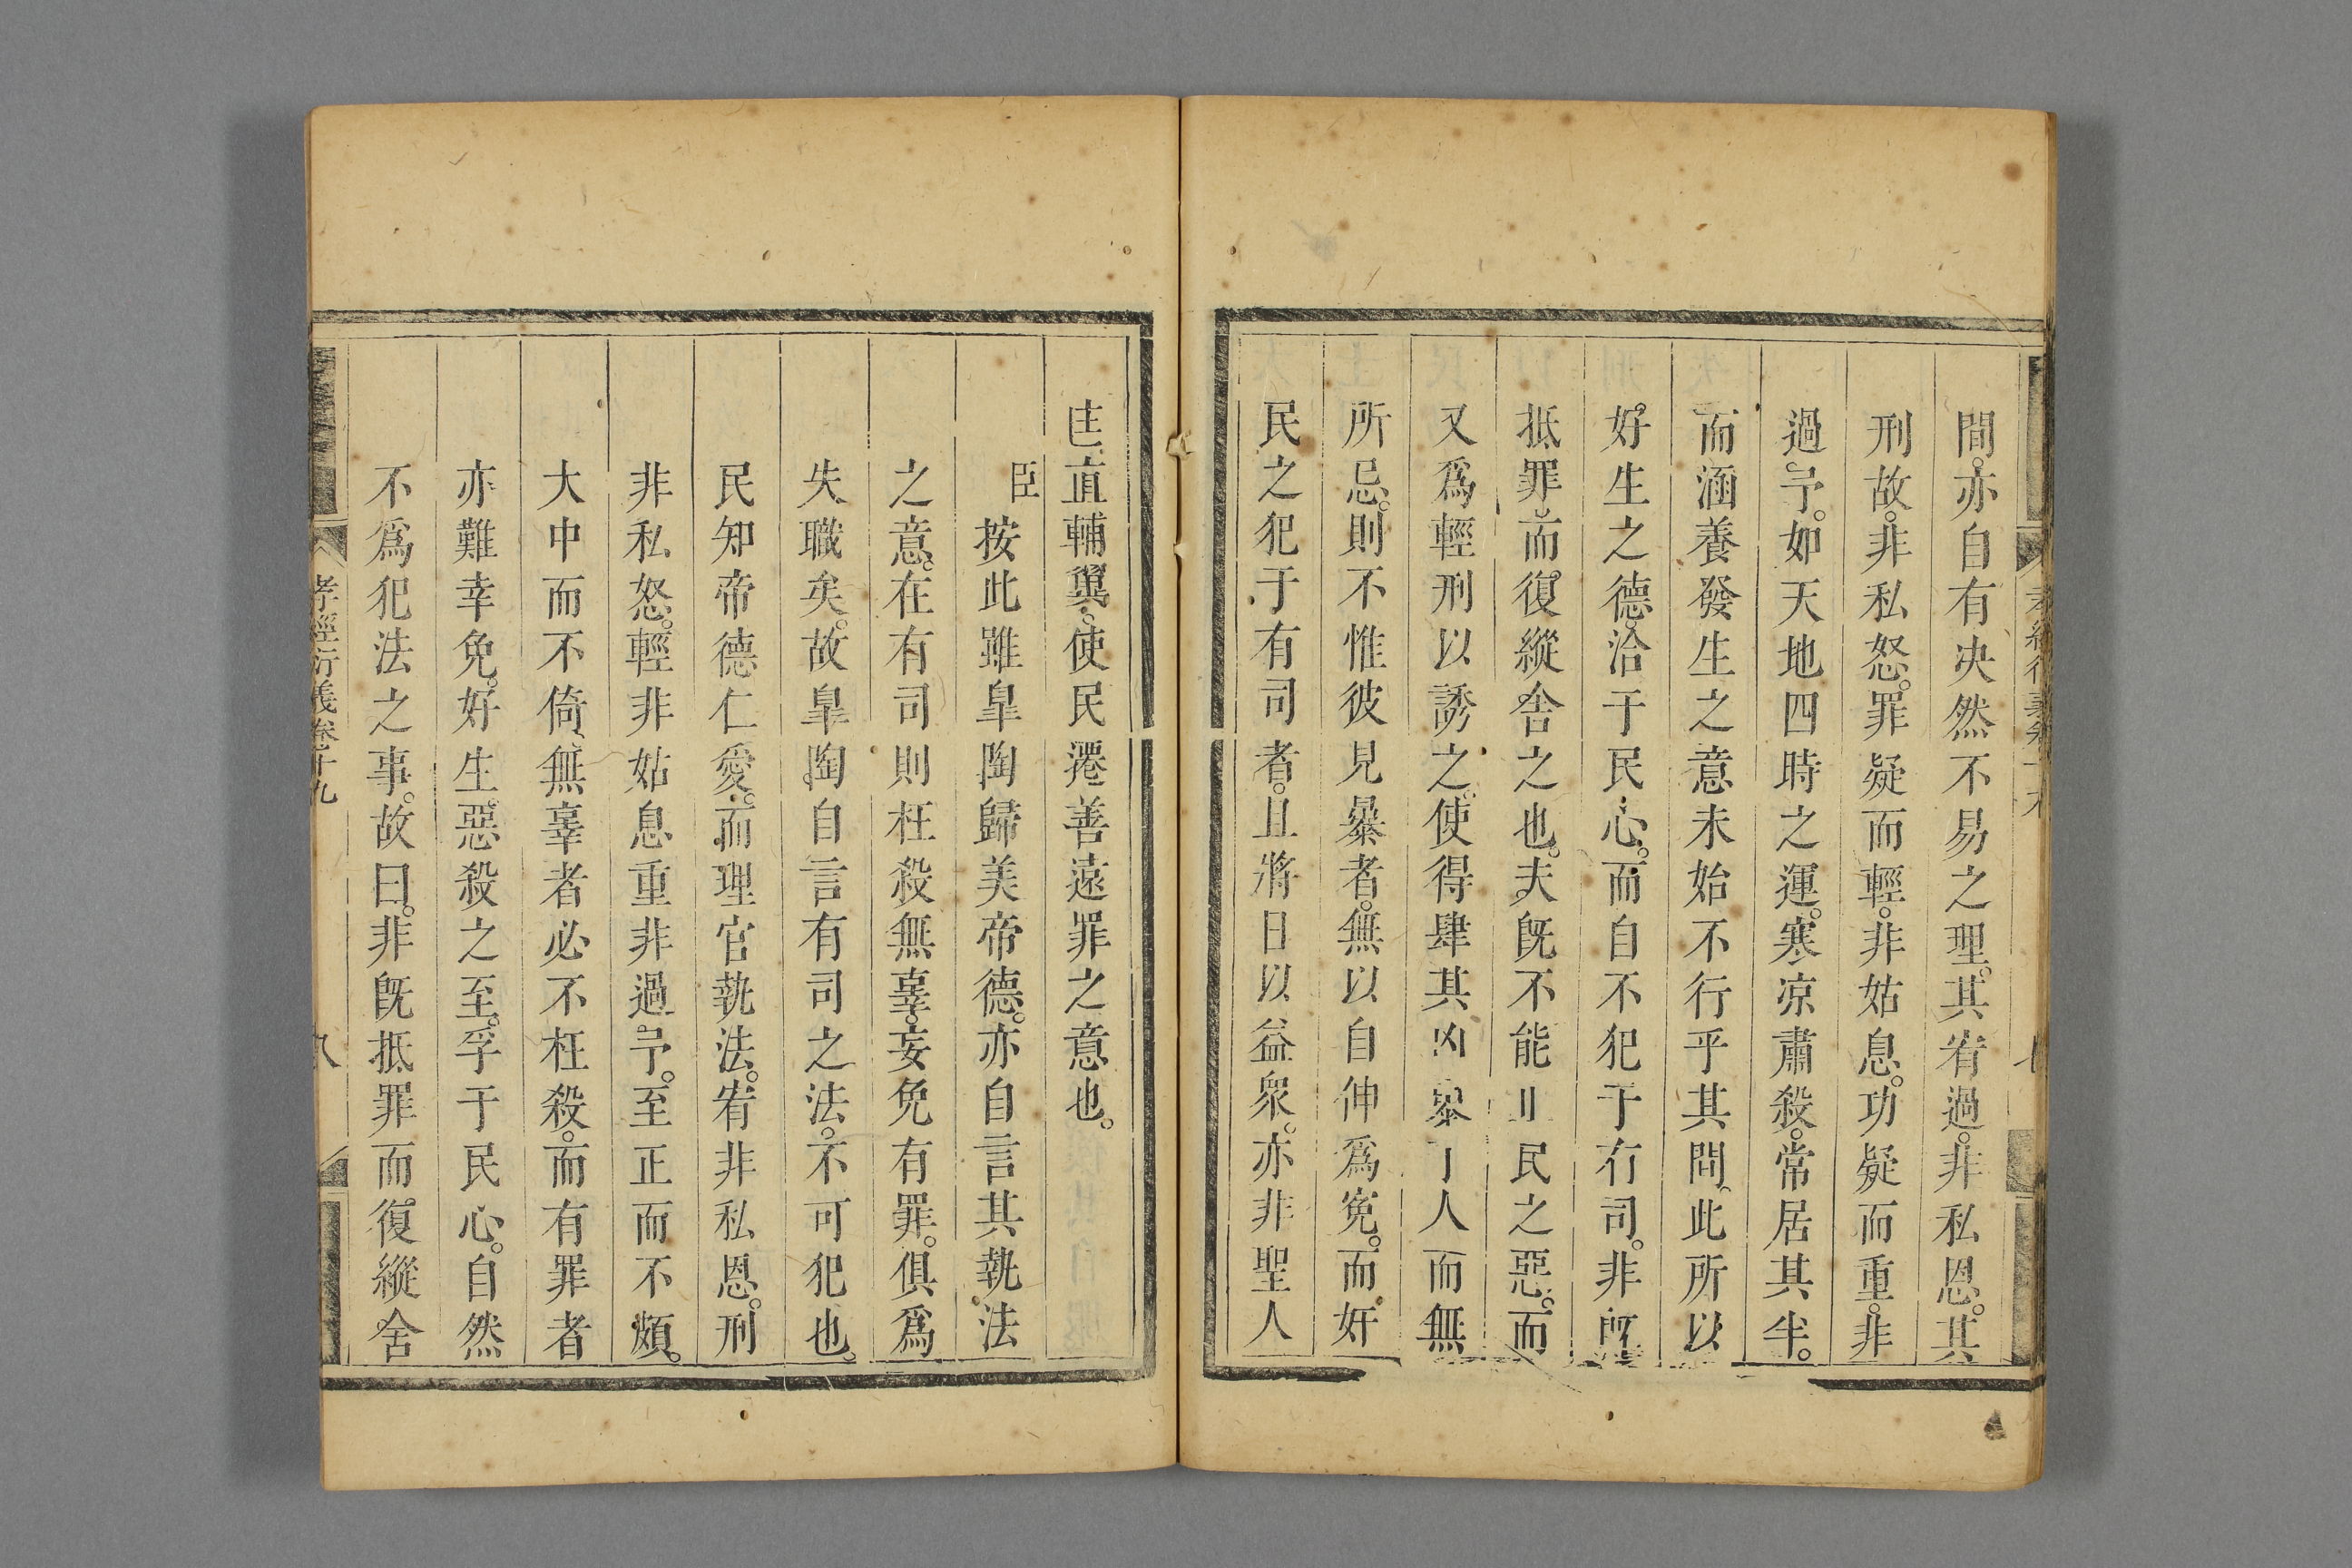 間。亦自有决然不易之理。其宥過。非私恩。其
刑故。非私怒。罪疑而輕。非姑息。功疑而重。非
過予。如天地四時之運。寒凉肅殺。常居其半。
而涵養發生之意未始不行乎其間。此所以
好生之德。洽于民心。而自不犯于有司。非旣
抵罪而復縱舍之也。夫旣不能 民之惡。而
又爲輕刑以誘之。使得肆其凶暴 人而無
所忌。則不惟彼見暴者。無以自伸爲冤。而奸
民之犯于有司者。且將日以益衆。亦非聖人
匡直輔翼。使民遷善遠罪之意也。
臣按此雖臯陶歸美帝德。亦自言其執法
之意。在有司則枉殺無辜。妄免有罪。俱爲
失職矣。故臯陶自言有司之法。不可犯也。
民知帝德仁愛。而理官執法。宥非私恩。刑
非私怒。輕非姑息重非過予。至正而不頗。
大中而不倚。無辜者必不枉殺。而有罪者
亦難幸免。好生。惡殺之至。孚于民心。自然
不爲犯法之事。故曰。非旣抵罪而復縱舍
孝經衍義卷十九
八